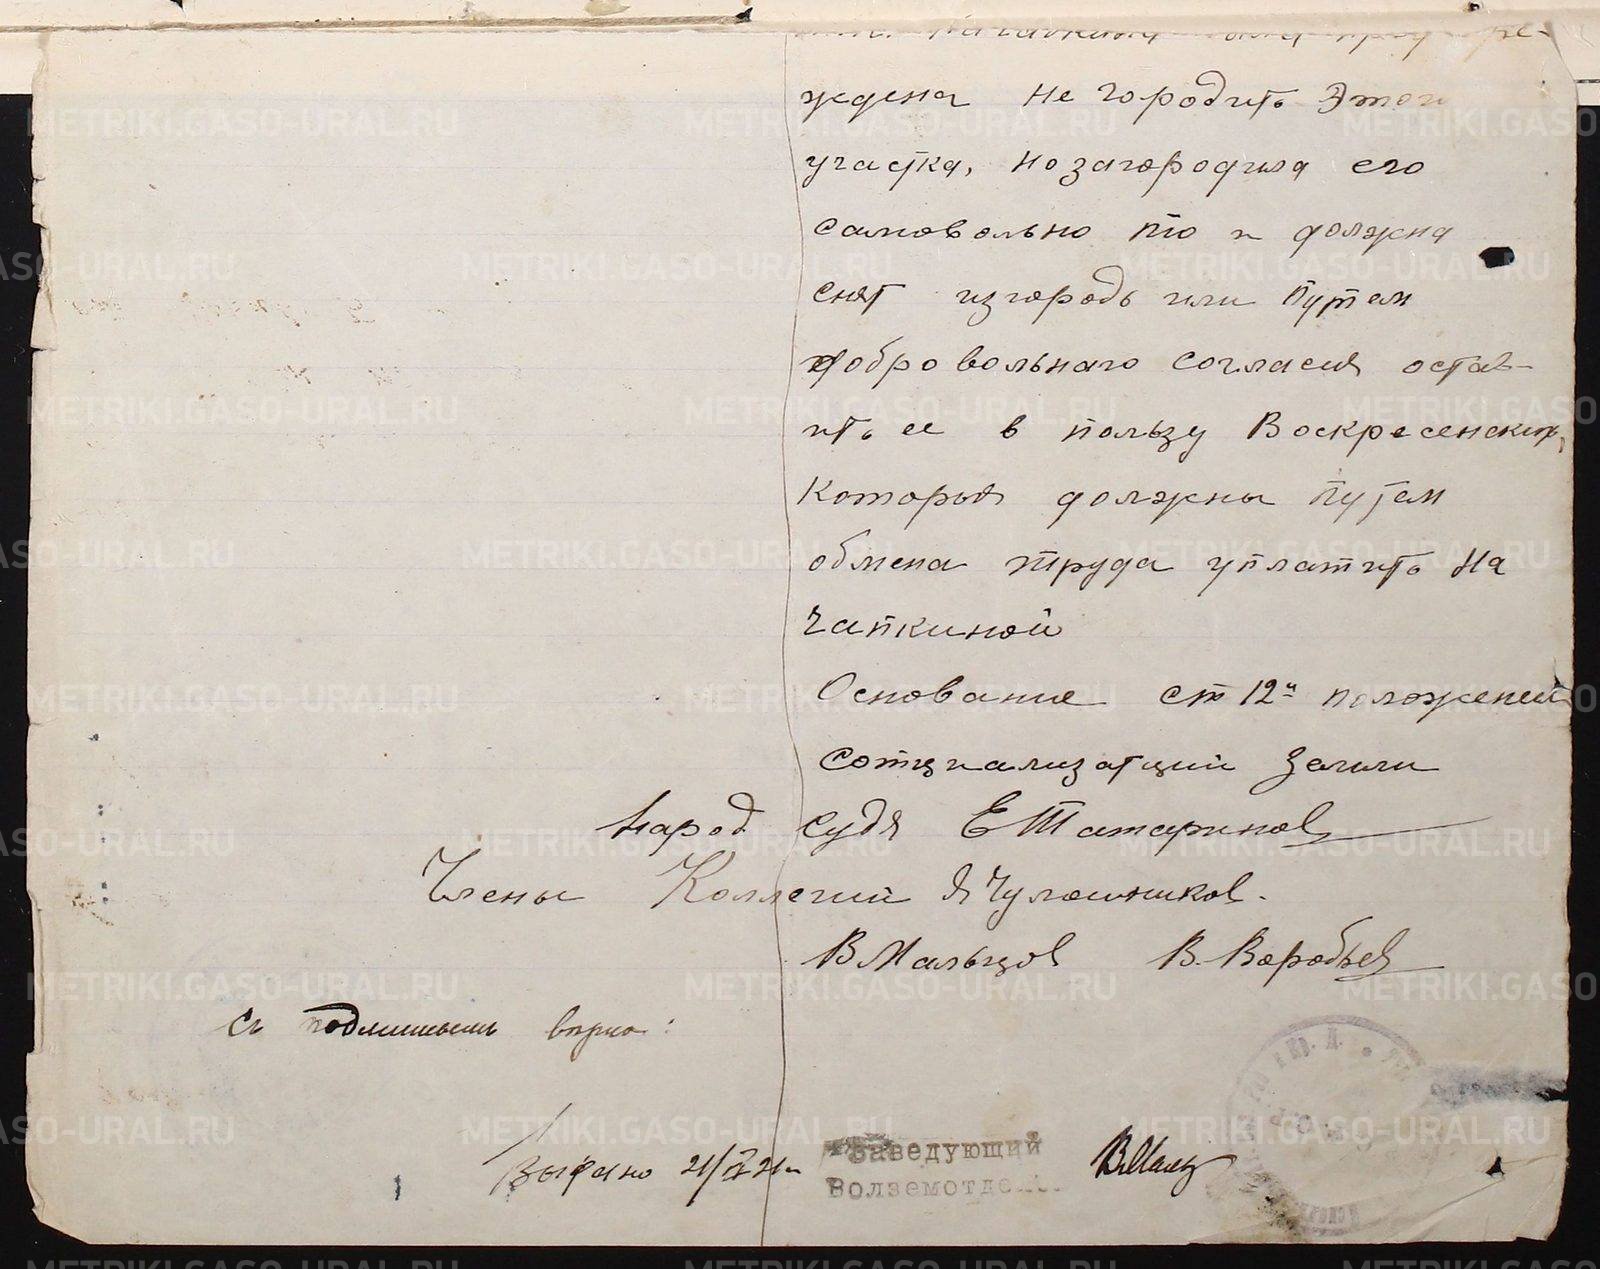 ждена не городить этого
участка, но загородила его
самовольно то и должна
снят изгородь или путем
добровольнаго согласия остав-
ить ее в пользу Воскресенских,
которыя должны путем
обмена труда уплатить На
чапкиной
Основание ст 12й положений
сотциализатции Земли
Народ судя Е Татаринов
Члены Коллегии Я Чулошников.
В Мальцов В. Воробьев
Съ подлинным верно:
Выдано 21/IV 21 г.
Заведующий
Волземотде